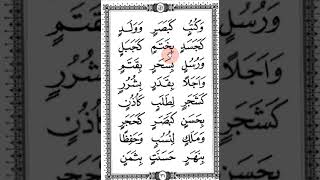 وَكُتُبٍ كَبَصَرٍ وَوَلَدٍ
كَجَسَدٍ بِخَتَمٍ كَجَبَلٍ
وَرُسُلٍ بِسَحَرٍ بِقَتَمٍ
وَاَجَلًا بِقَدَرٍ بِشُرُرٍ
كَشَجَرٍ لِطَلَبٍ كَاُذُنٍ
بِحَسَنٍ كَبَصَرٍ كَحَجَرٍ
وَمَلَكٍ لِنُسُبٍ وَحَفِظًا
بِنَهَرٍ حَسَنَتٍ بِثَمَنٍ